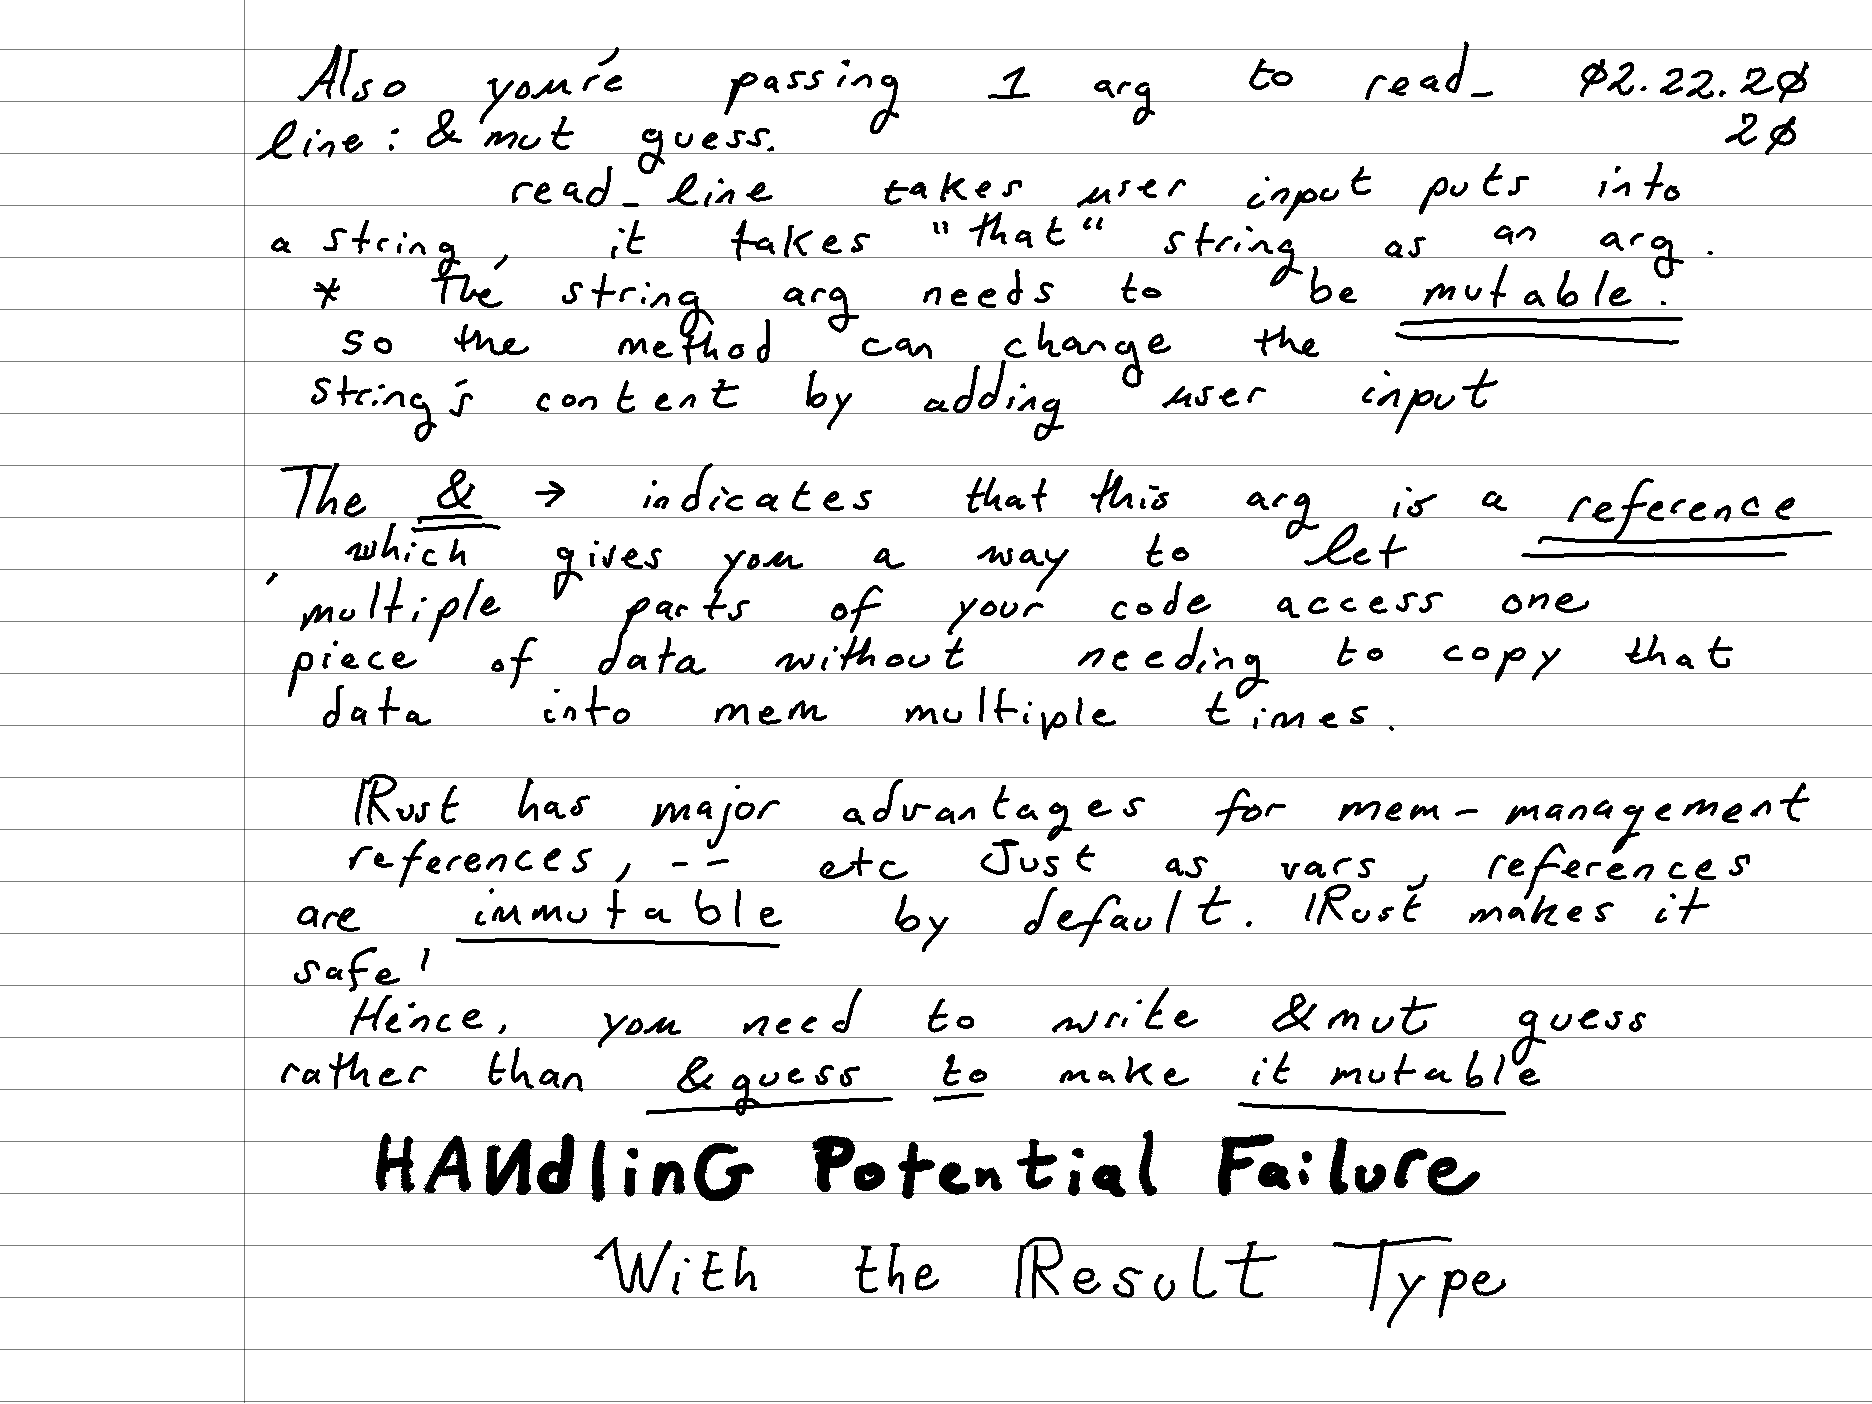 Also you're passing 1 arg to read_ 02.22.20
line: & mut guess. 20
read_line takes user input puts into
a string, it takes "that" string as an arg.
* The string arg needs to be mutable.
so the method can change the
string's content by adding user input
The & → indicates that this arg is a reference
, which gives you a way to let
multiple parts of your code access one
piece of data without needing to copy that
data into mem multiple times.
Rust has major advantages for mem-management
references, -- etc Just as vars, references
are immutable by default. Rust makes it
safe!
Hence, you need to write &mut guess
rather than &guess to make it mutable
HANdlinG Potential Failure
With the Result Type